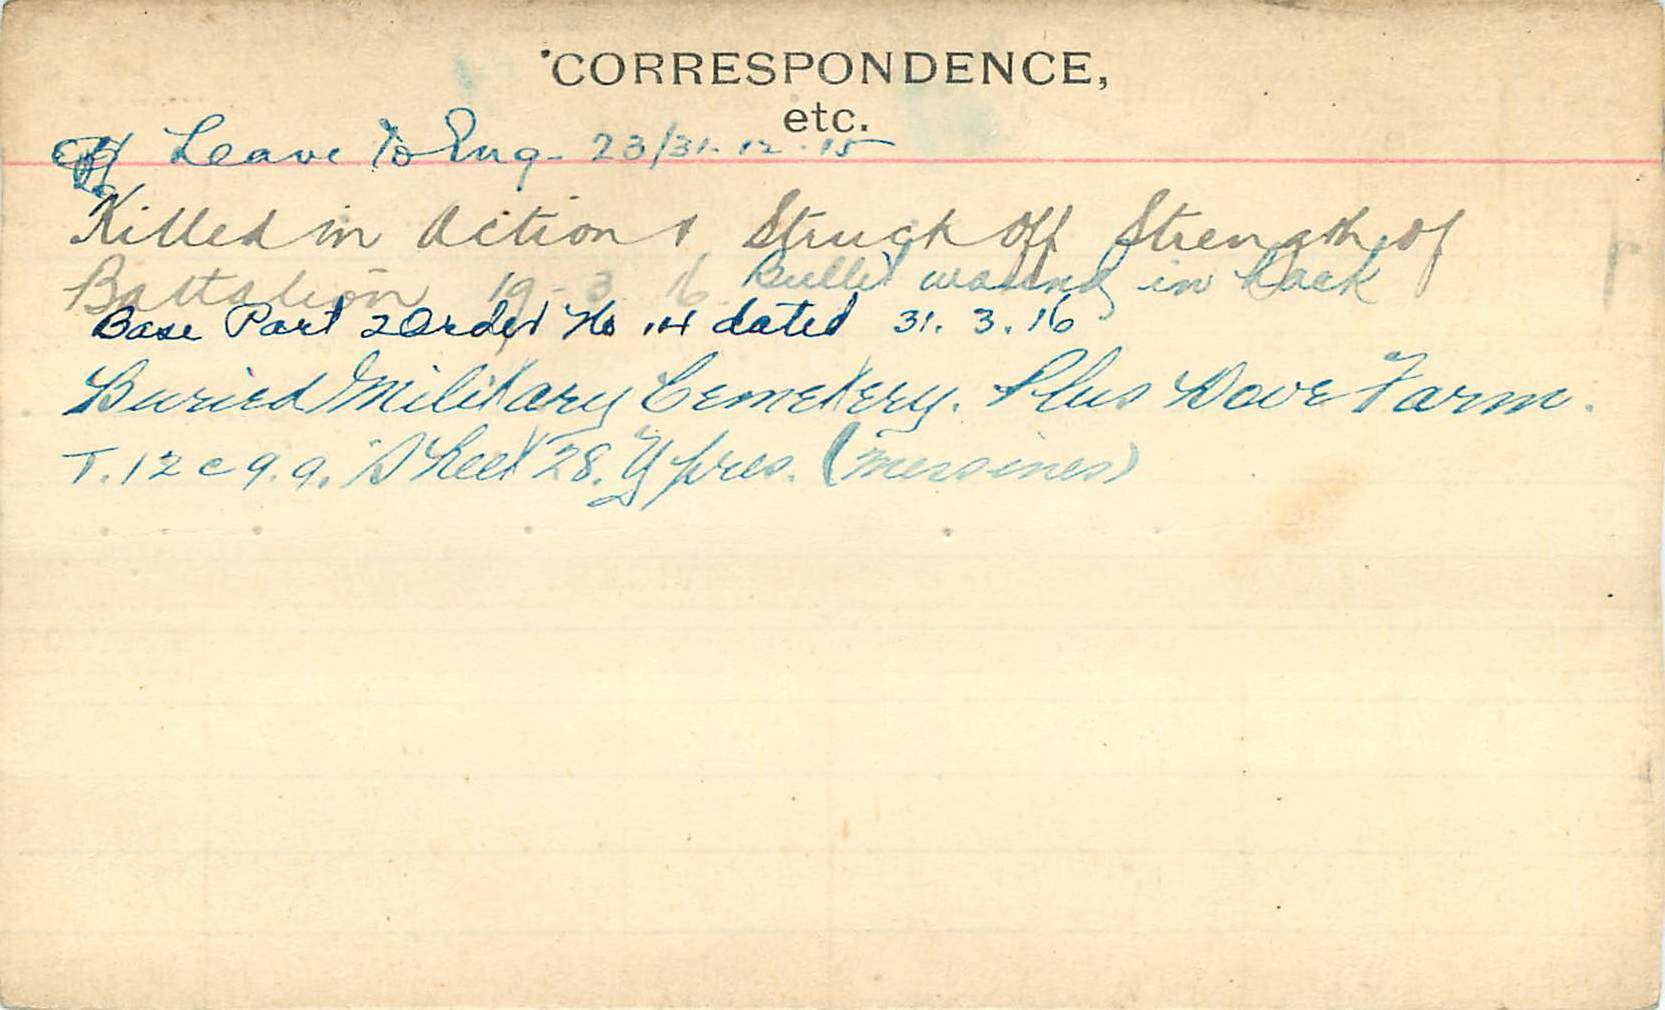 CORRESPONDENCE,
etc.
Leave to Eng- 23/31-12-15
Killed in Action & Struck Off Strength of
Battalion 19-3-16 Bullet wound in back
Base Part 2 Order No 14 dated 31.3.16
Buried Military Cemetery. Plus Dove Farm.
T.12 c 9.9. Sheet 28. Ypres. (Messines)